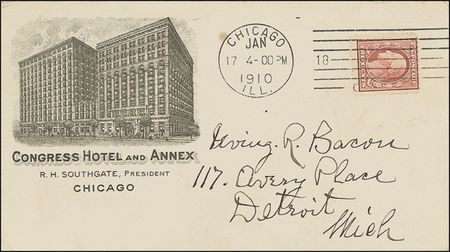 CHICAGO
JAN
17 4-00PM
1910
ILL.
18
CONGRESS HOTEL AND ANNEX
R. H. SOUTHGATE, PRESIDENT
CHICAGO
Irving. R. Bacon
117. Avery Place
Detroit
Mich